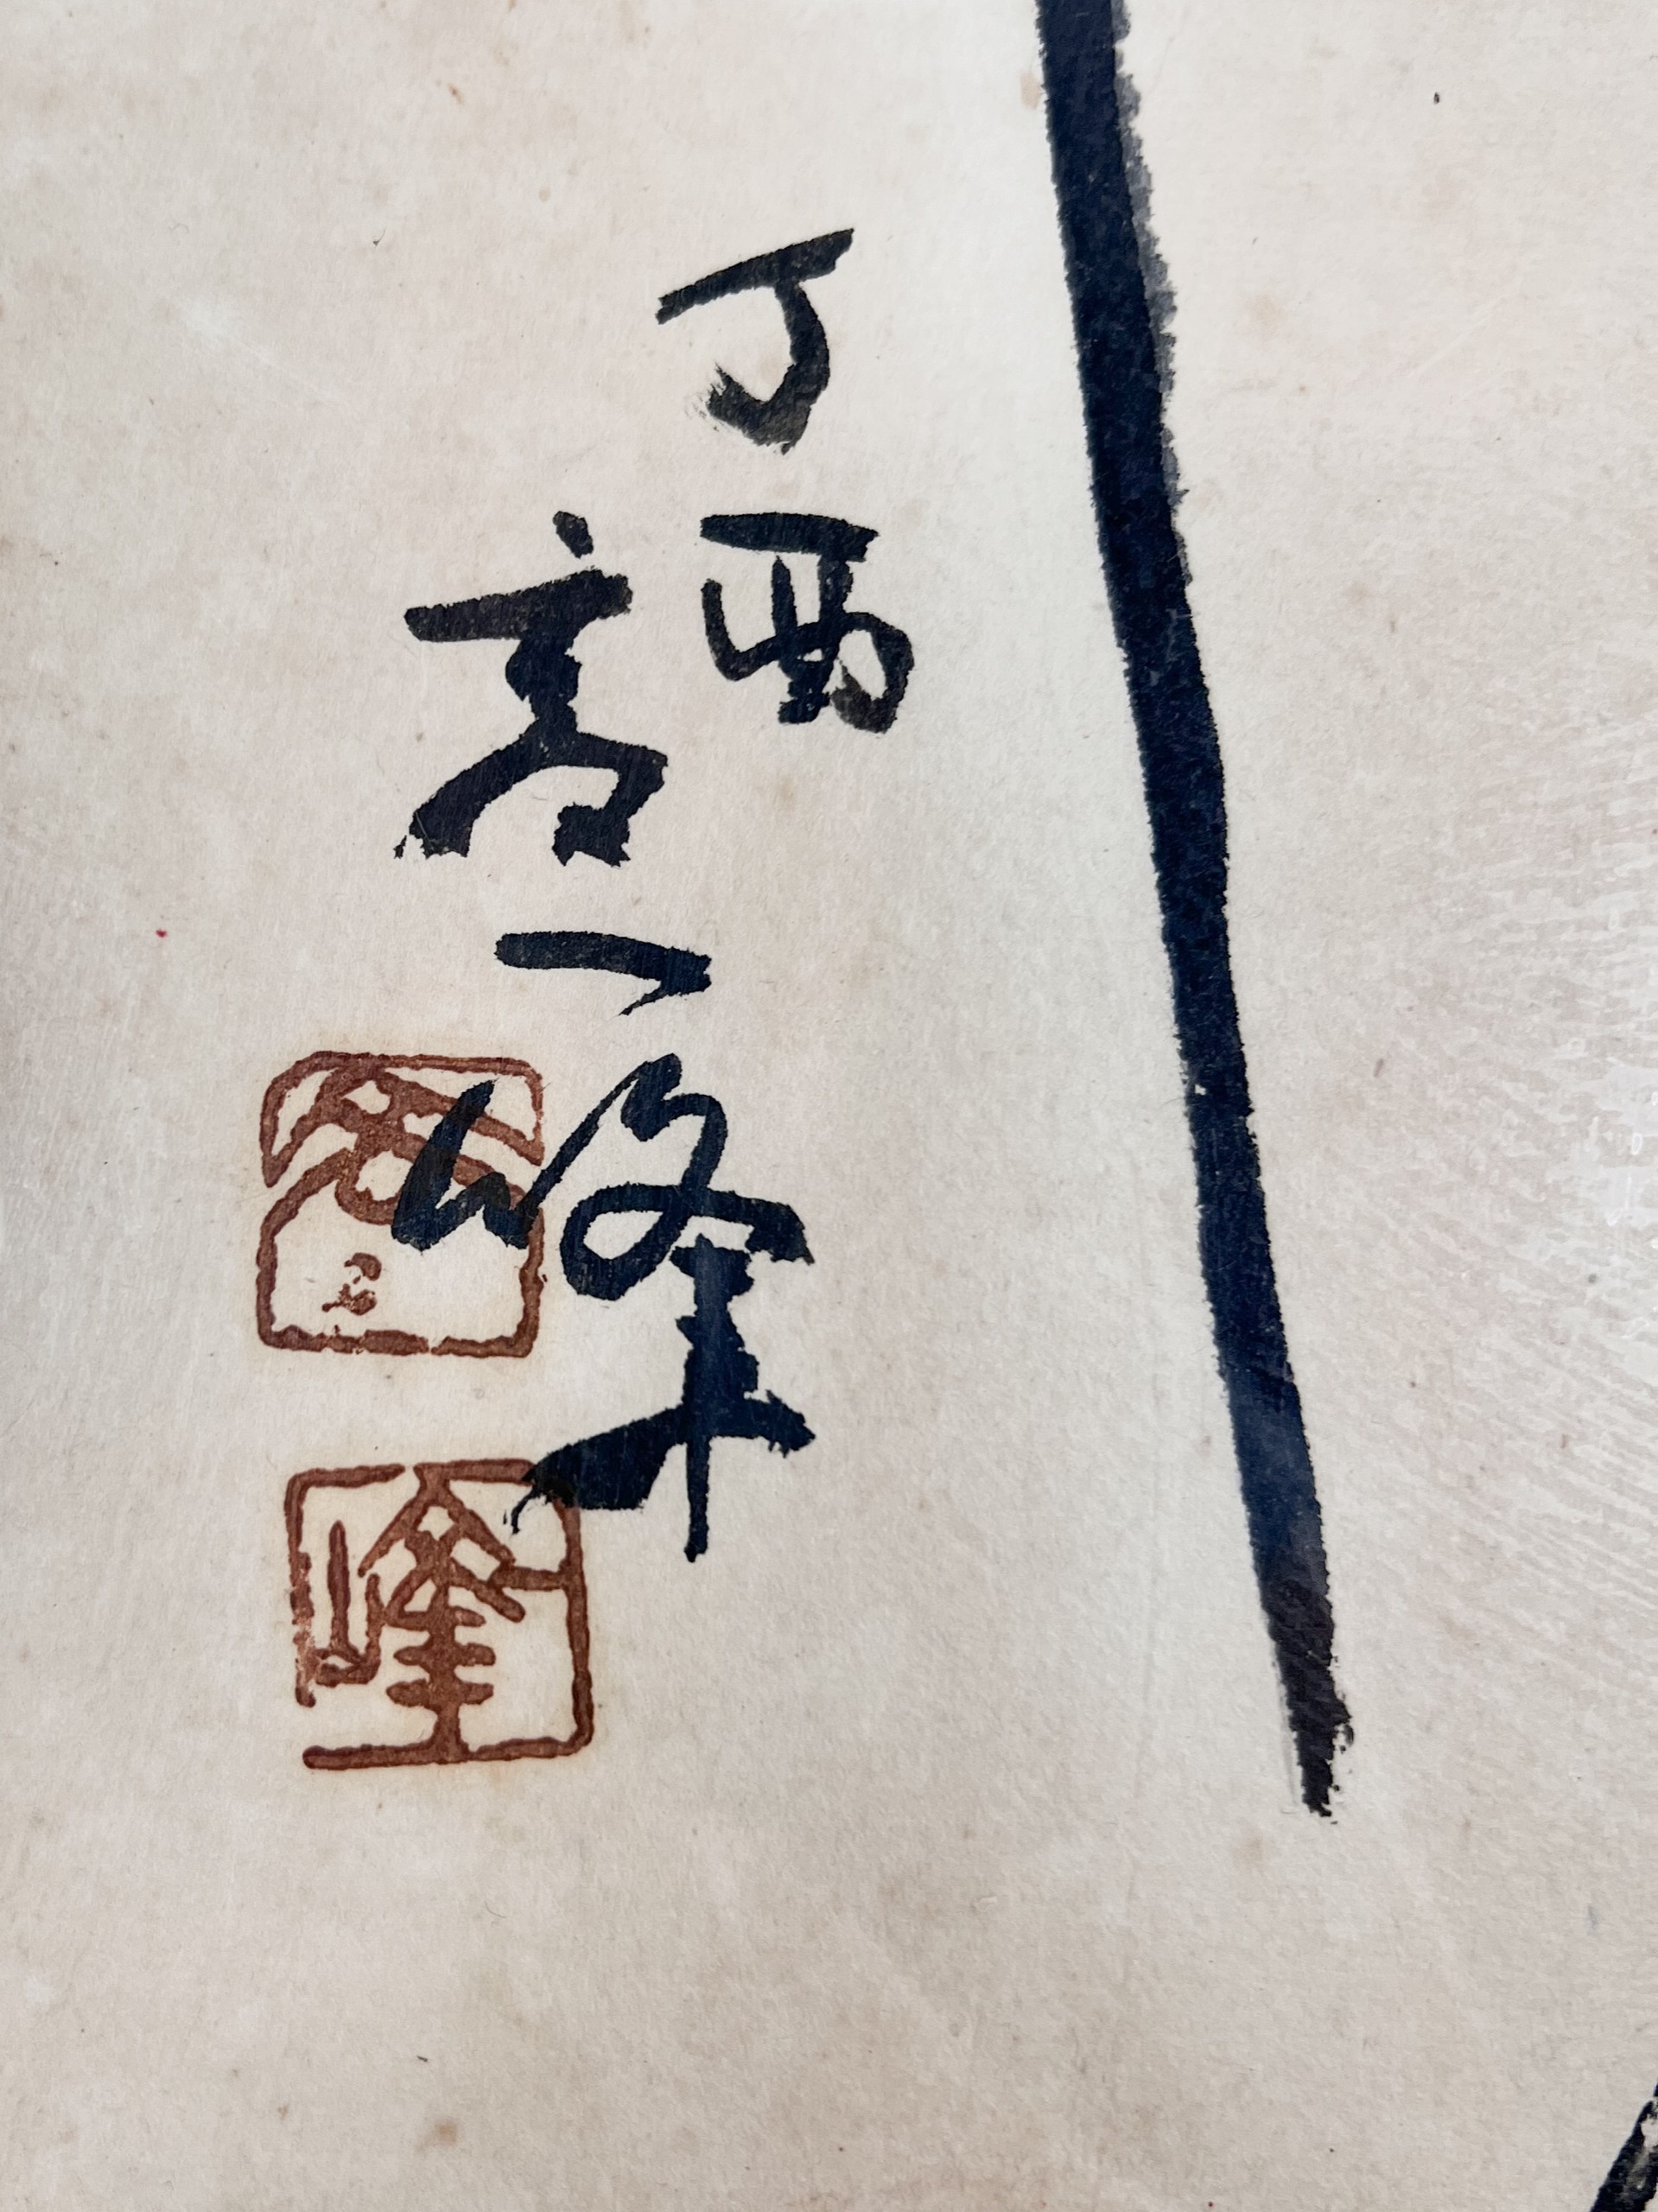 丁酉
高一峰
峰